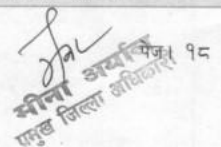 पेज। १८
मीना अर्याल
प्रमुख जिल्ला अधिकारी